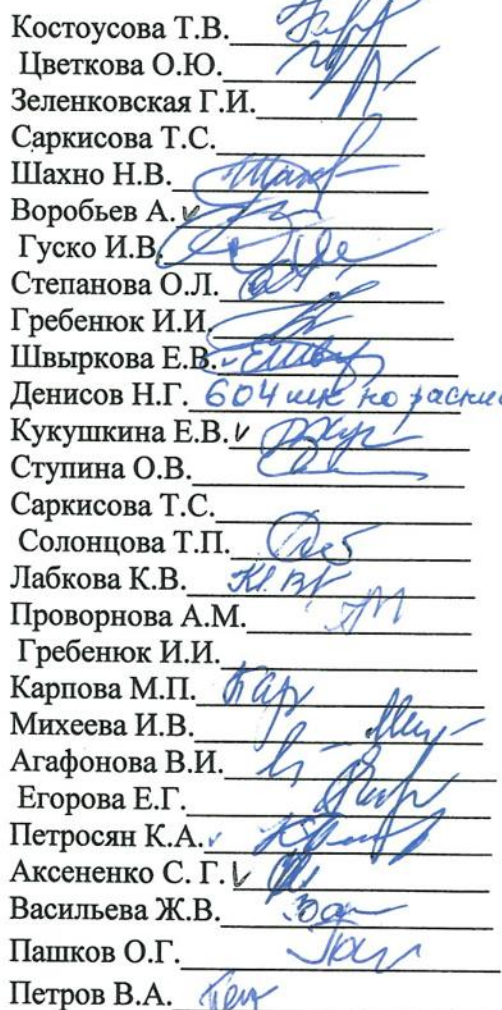 Костоусова Т.В.
Цветкова О.Ю.
Зеленковская Г.И.
Саркисова Т.С.
Шахно Н.В.
Воробьев А.
Гуско И.В.
Степанова О.Л.
Гребенюк И.И.
Швыркова Е.В.
Денисов Н.Г. 604 шк по
Кукушкина Е.В.
Ступина О.В.
Саркисова Т.С.
Солонцова Т.П.
Лабкова К.В.
Проворнова А.М.
Гребенюк И.И.
Карпова М.П.
Михеева И.В.
Агафонова В.И.
Егорова Е.Г.
Петросян К.А.
Аксененко С. Г.
Васильева Ж.В.
Пашков О.Г.
Петров В.А.